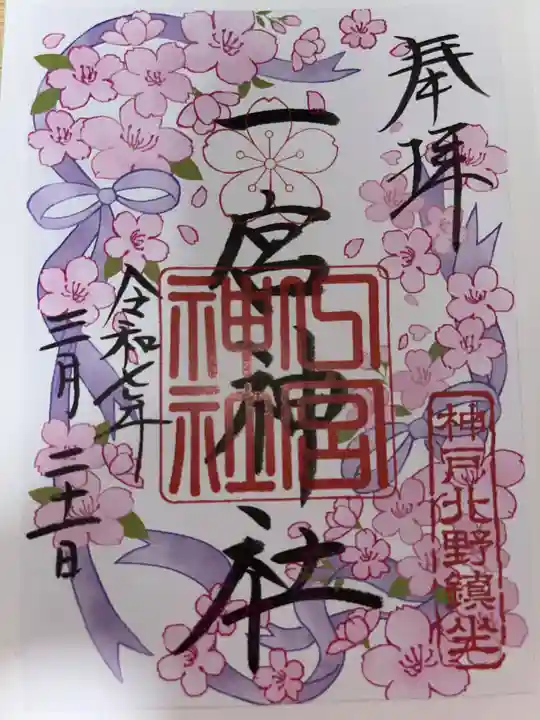 奉拝
一宮神社
一宮
神社
神戸北野鎮坐
令和七年
三月二十一日